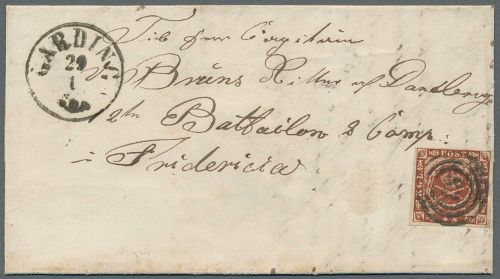 GARDING
29
1
Til Herr Capitain
v Bruns Ritter af Dandbrog
12te Battailon 2 Comp:
i Fridericia
KGL POST
4 S